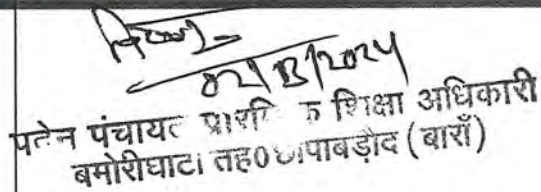 02/8/2024
पदेन पंचायत प्रारंभिक शिक्षा अधिकारी
बमोरीघाटा तह० छीपाबड़ौद (बाराँ)